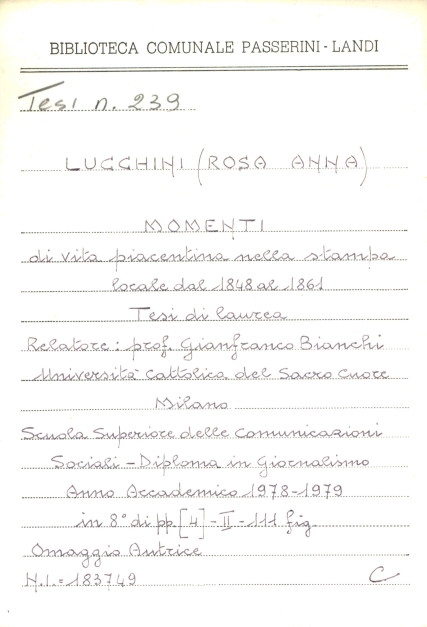 BIBLIOTECA COMUNALE PASSERINI-LANDI
Tesi n. 239
LUCCHINI (ROSA ANNA)
MOMENTI
di vita piacentina nella stampa
locale dal 1848 al 1861
Tesi di laurea
Relatore: prof. Gianfranco Bianchi
Università Cattolica del Sacro Cuore
Milano
Scuola Superiore delle Comunicazioni
Sociali - Diploma in Giornalismo
Anno Accademico 1978-1979
in 8° di pp. [4] - II - 111 fig.
Omaggio Autrice
N.I. = 183749 C